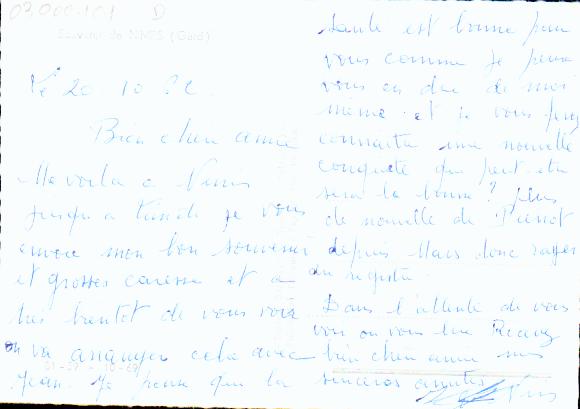 03,000-101 D
Souvenir de NIMES (Gard)
Le 20 10
Bien cher amie
Me voila a Nimes
jusqu a Lundi je vous
envoie mon bon souvenir
et grosses caresse et a
tres bientot de vous voir
on va arranger cela avec
Jean. Je pense que la
sante est bonne pour
vous comme je peux
vous en dire de moi
meme et je vous
connaitre une nouvelle
conquete qui peut etre
sera la bonne? plus
de nouvelle de Pierrot
depuis Mars donc rayer
du registre
Dans l'attente de vous
voir ou vous lire Recevez
bien cher amie mes
sinceres amities